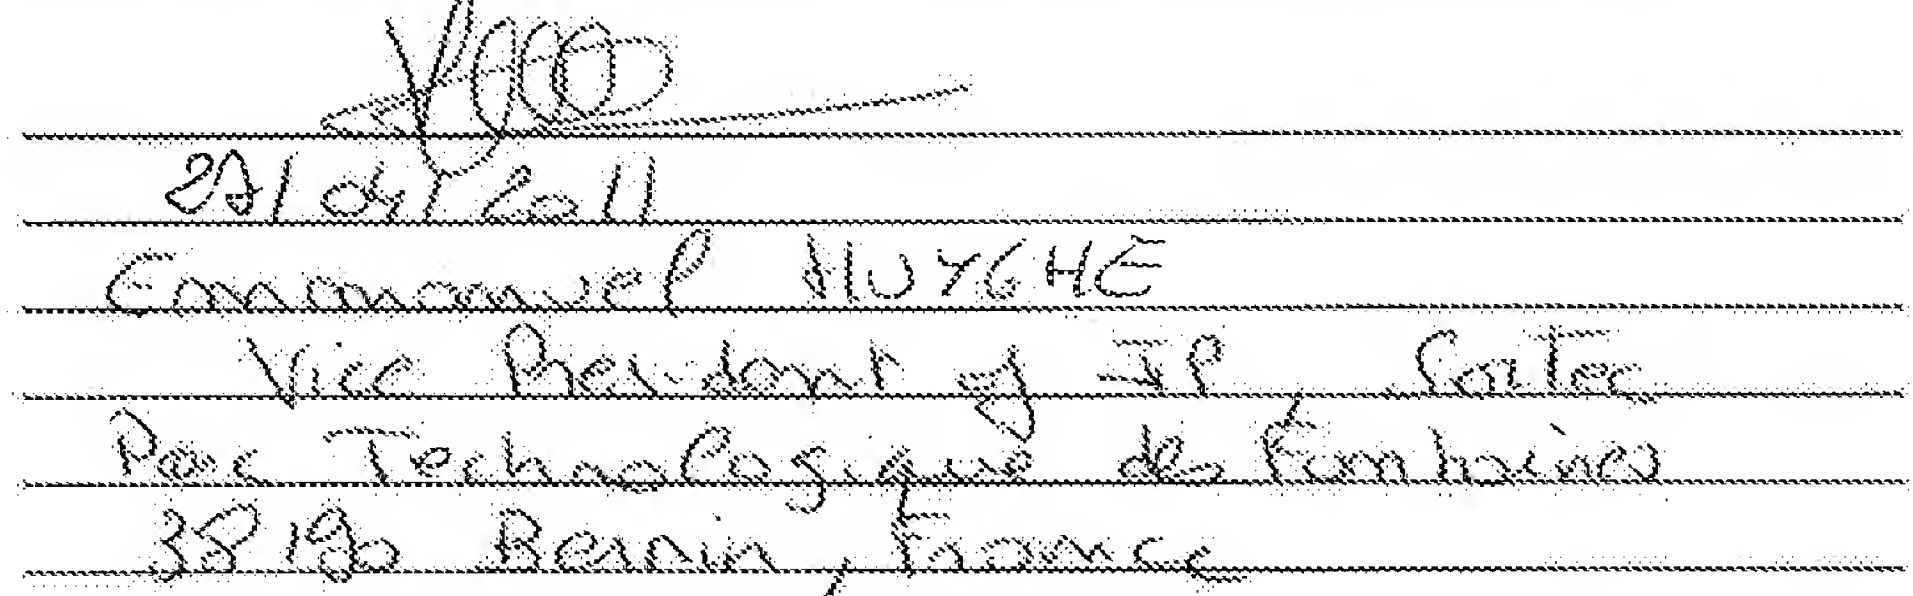 /2011
Emmanuel HUYGHE
Vice President of IP, Soitec
Parc Technologique des Fontaines
38190 Bernin, France